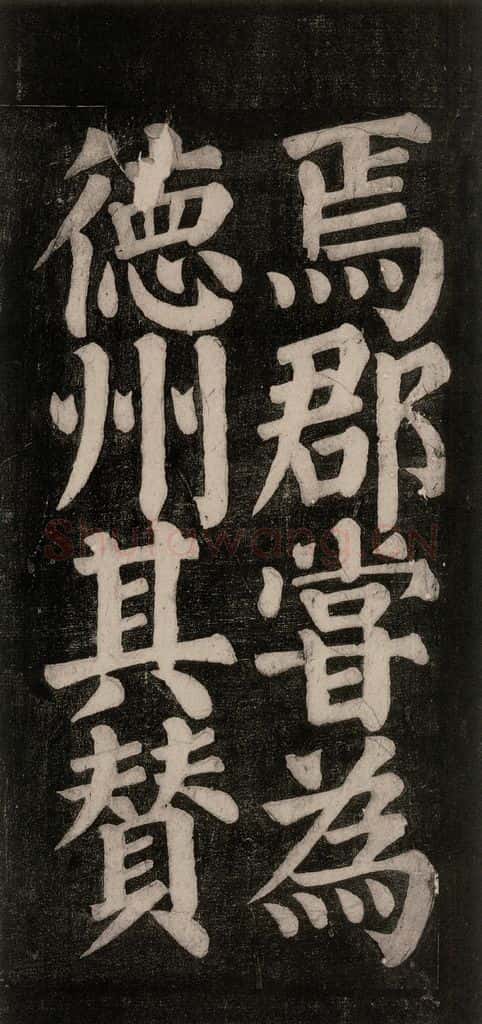 焉郡嘗為
德州其贊
Shufawang.CN